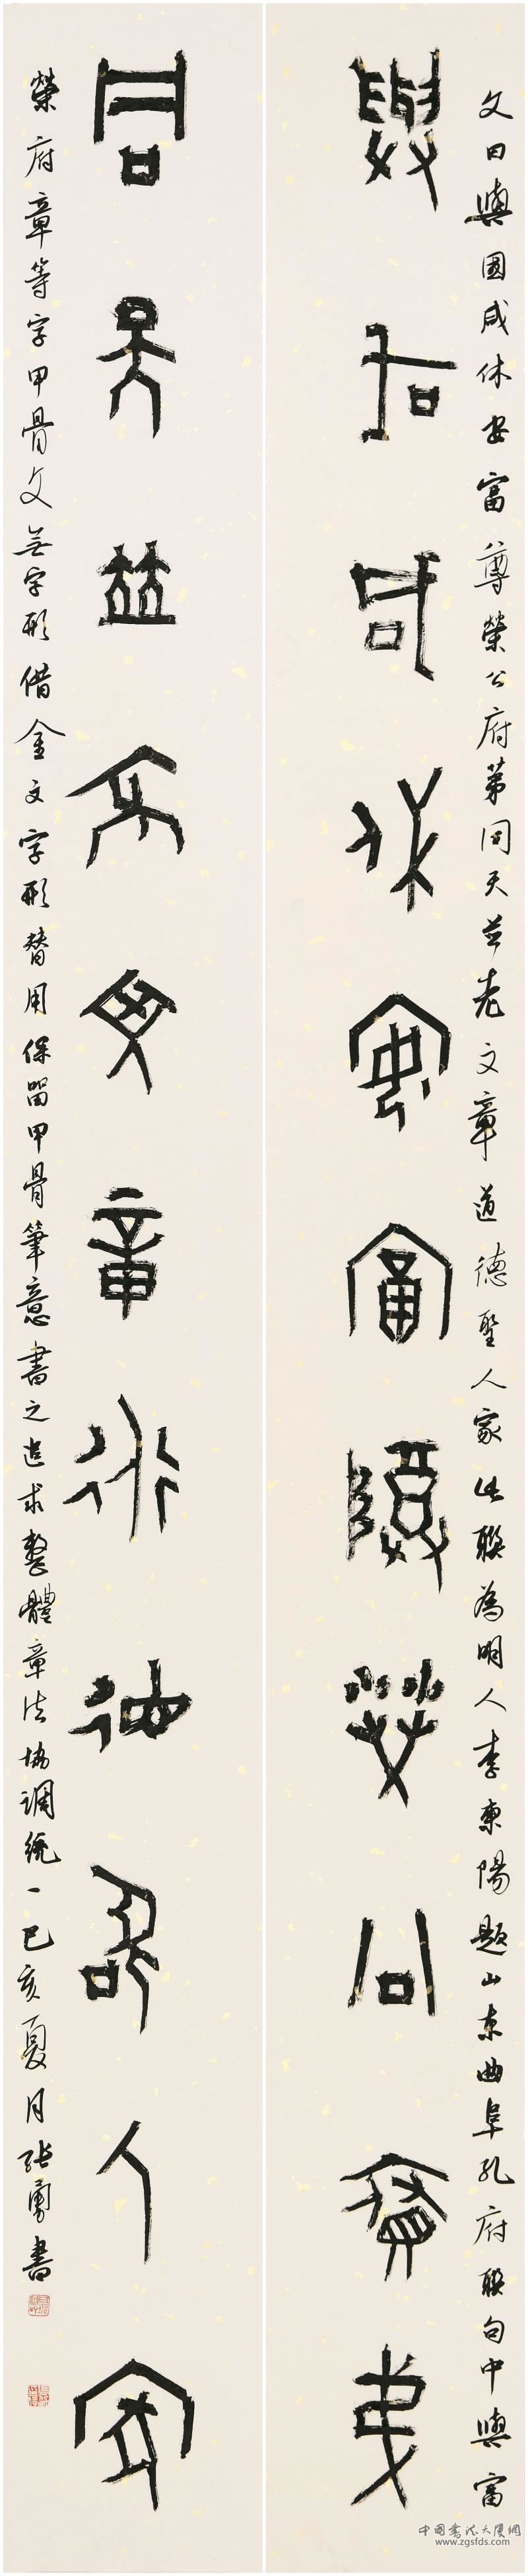 與國咸休安富尊榮公府第
同天並老文章道德聖人家
文曰與國咸休安富尊榮公府第同天並老文章道德聖人家此聯為明人李東陽題山東曲阜孔府聯句中與富
榮府章等字甲骨文無字形借金文字形替用保留甲骨筆意書之追求整體章法協調統一己亥夏月張勇書
中国书法大厦网
www.zgsfds.com